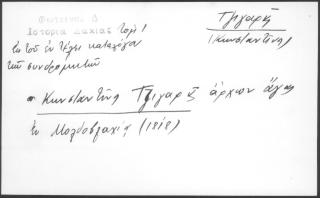 Φωτεινού Δ
Ιστορία Δακίας Τομ.1
Εκ του εν τέλει καταλόγου
των συνδρομητών
Τζιγαράς
(Κωνσταντίνος)
Κωνσταντίνος Τζιγαράς άρχων άγας
εν Μολδοβλαχία (1818)